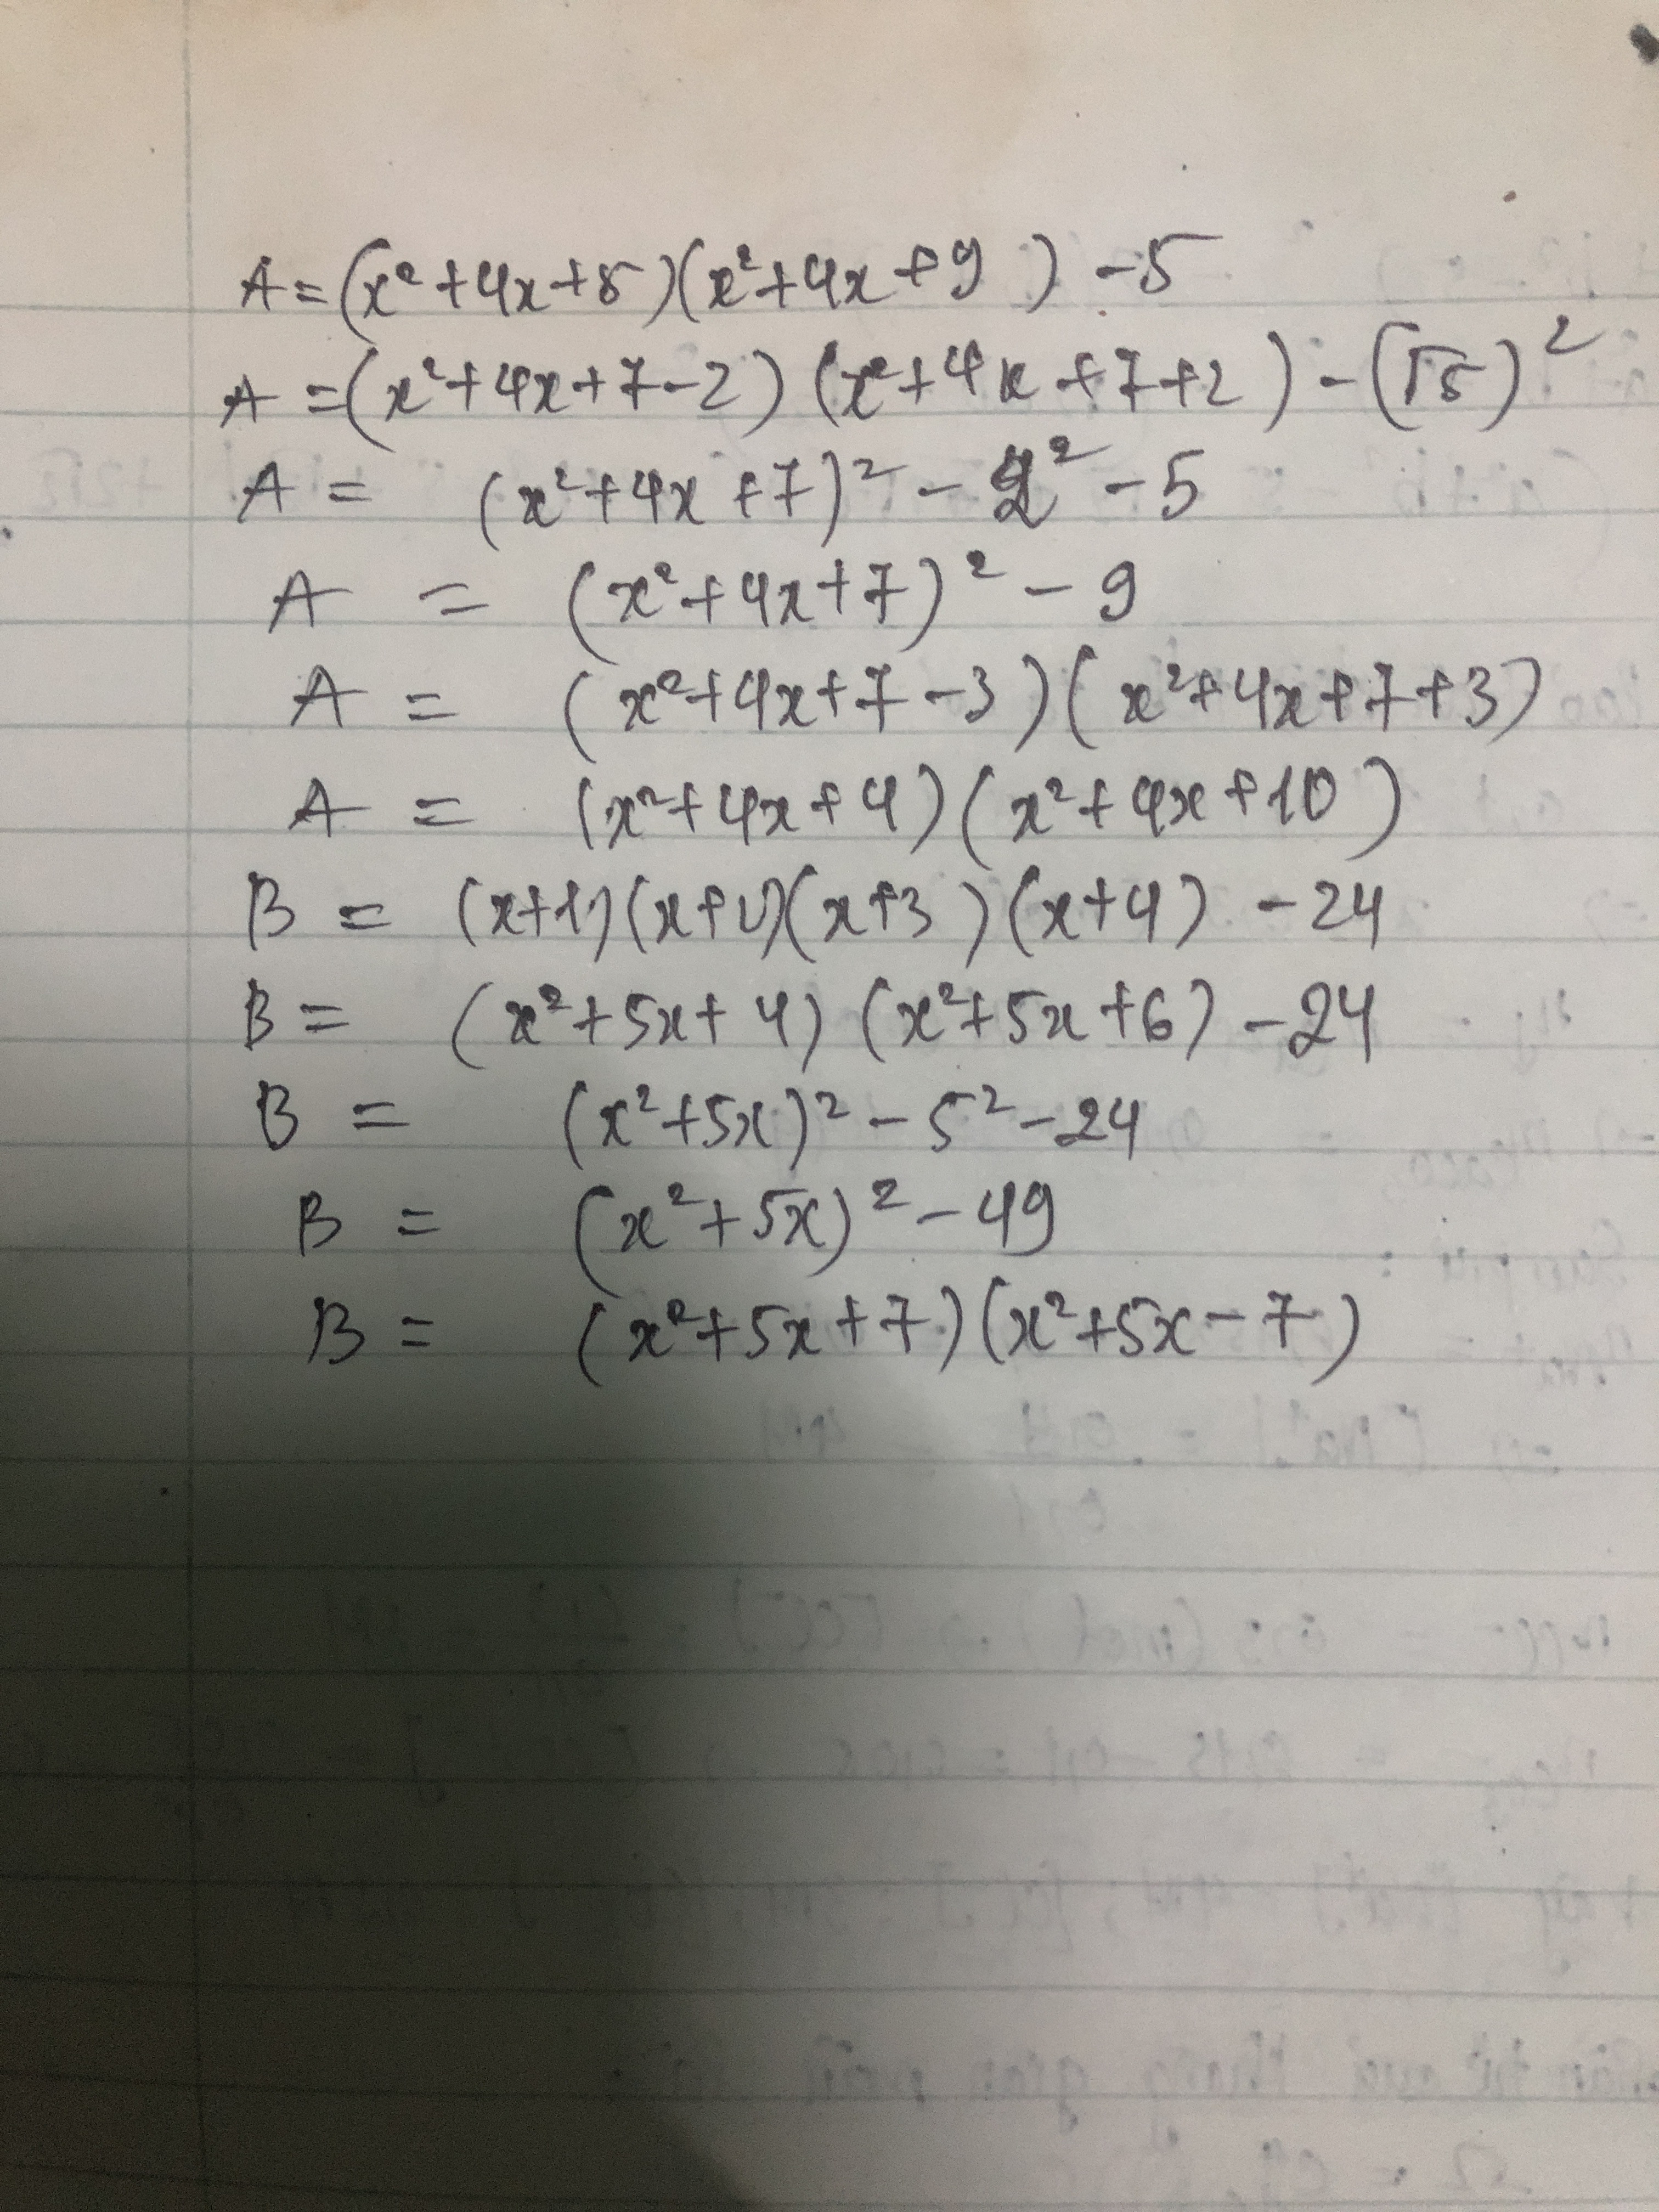 A = (x²+4x+5)(x²+4x+9) -5
A = (x²+4x+7-2) (x²+4x+7+2) - (√5)²
A = (x²+4x+7)² - 2² - 5
A = (x²+4x+7)² - 9
A = (x²+4x+7-3)(x²+4x+7+3)
A = (x²+4x+4)(x²+4x+10)
B = (x+1)(x+2)(x+3)(x+4) -24
B = (x²+5x+4) (x²+5x+6) -24
B = (x²+5x)² - 5² -24
B = (x²+5x)² - 49
B = (x²+5x+7)(x²+5x-7)